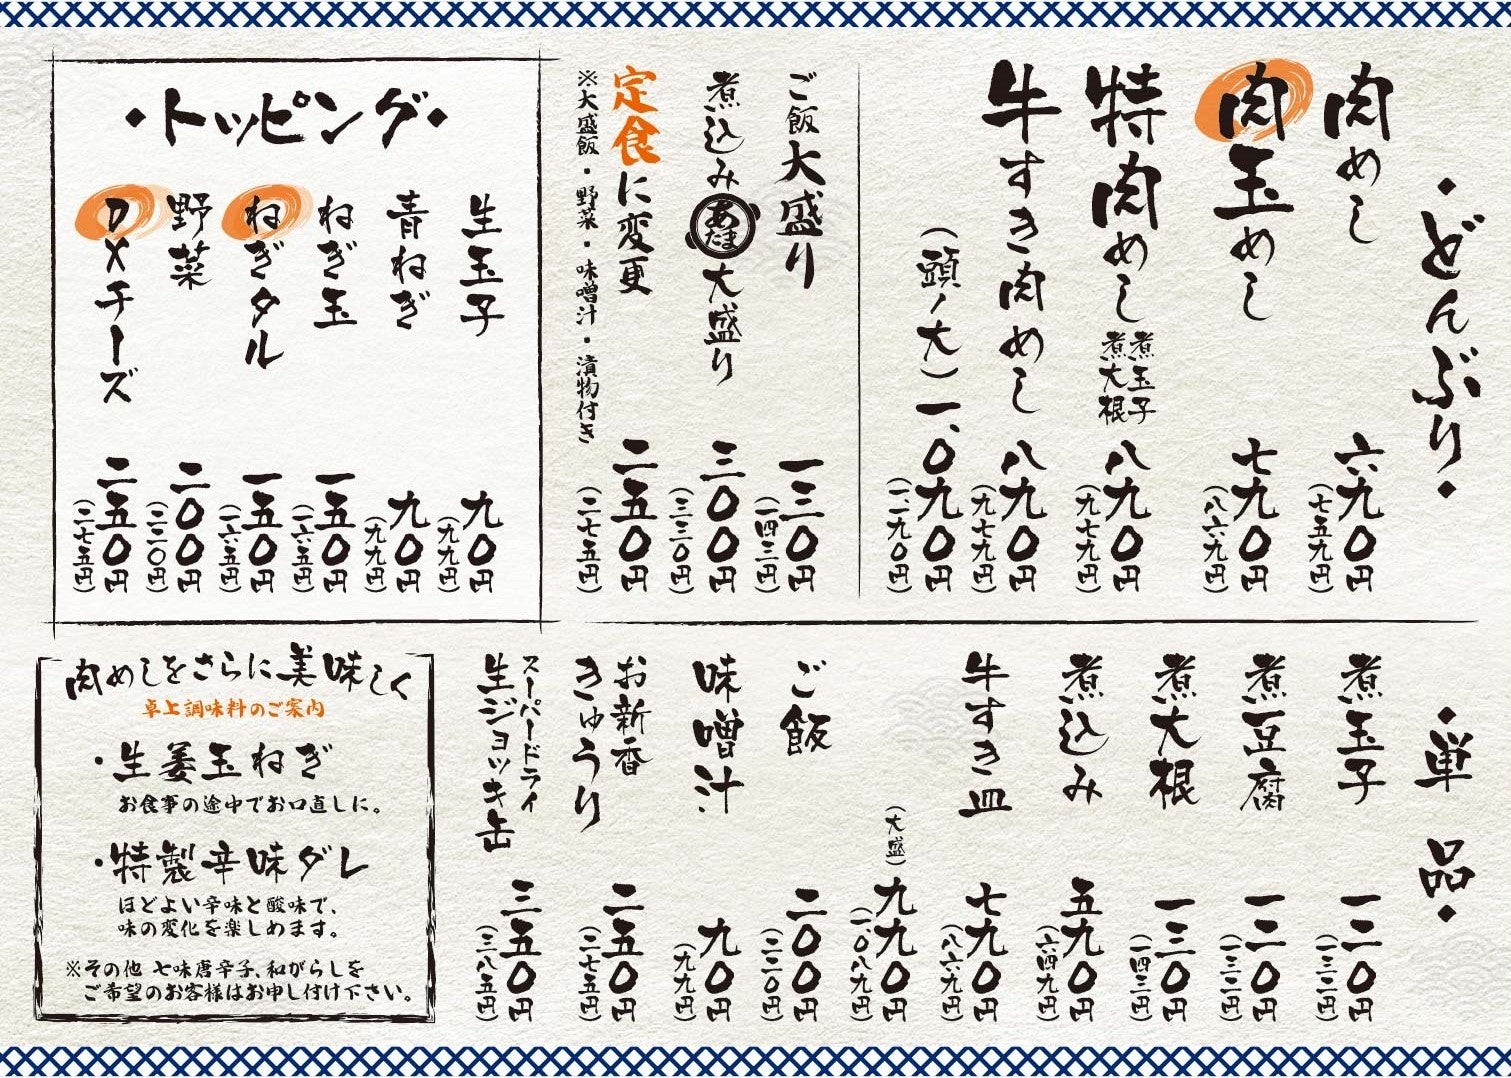 ・どんぶり・
肉めし 六九〇円
（七五九円）
肉玉めし 七九〇円
（八六九円）
特肉めし 煮玉子 煮大根 八九〇円
（九七九円）
牛すき肉めし 八九〇円
（九七九円）
（頭ノ大）一、〇九〇円
（一、一九〇円）
ご飯大盛り 一三〇円
（一四三円）
煮込みあたま大盛り 三〇〇円
（三三〇円）
定食に変更 二五〇円
（二七五円）
※大盛飯・野菜・味噌汁・漬物付き
・トッピング・
生玉子 九〇円
（九九円）
青ねぎ 九〇円
（九九円）
ねぎ玉 一五〇円
（一六五円）
ねぎタル 一五〇円
（一六五円）
野菜 二〇〇円
（二二〇円）
DXチーズ 二五〇円
（二七五円）
・単品・
煮玉子 一二〇円
（一三二円）
煮豆腐 一二〇円
（一三二円）
煮大根 一三〇円
（一四三円）
煮込み 五九〇円
（六四九円）
牛すき皿 七九〇円
（八六九円）
（大盛）九九〇円
（一、〇八九円）
ご飯 二〇〇円
（二二〇円）
味噌汁 九〇円
（九九円）
お新香
きゅうり 二五〇円
（二七五円）
スーパードライ
生ジョッキ缶 三五〇円
（三八五円）
肉めしをさらに美味しく
卓上調味料のご案内
・生姜玉ねぎ
お食事の途中でお口直しに。
・特製辛味ダレ
ほどよい辛味と酸味で、
味の変化を楽しめます。
※その他 七味唐辛子、和がらしを
ご希望のお客様はお申し付け下さい。